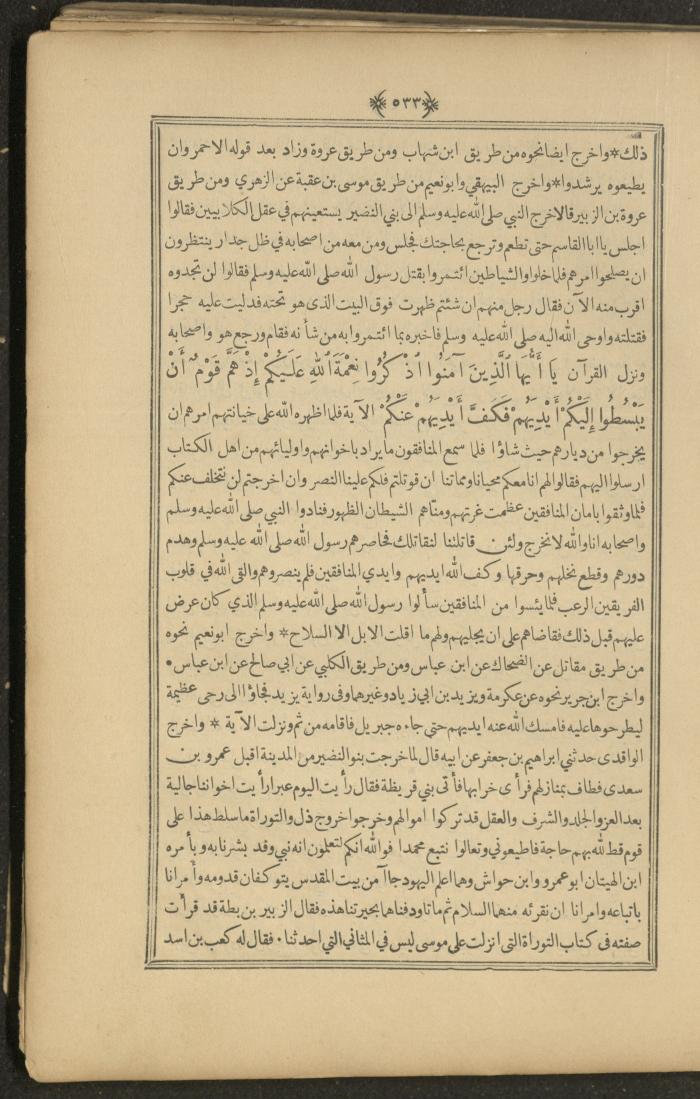 ٥٣٣
ذلك*واخرج ايضانحوه من طريق ابن شهاب ومن طريق عروة وزاد بعد قوله الاحمر وان
يطيعوه يرشدوا*واخرج البيهقي وابونعيم من طريق موسى بن عقبة عن الزهري ومن طريق
عروة بن الزبير قالا خرج النبي صلى الله عليه وسلم الى بني النضير يستعينهم في عقل الكلابيين فقالوا
اجلس يا ابا القاسم حتى تطعم وترجع بحاجتك فجلس ومن معه من اصحابه في ظل جدار ينتظرون
ان يصلحوا امرهم فلما خلوا والشياطين ائتمروا بقتل رسول الله صلى الله عليه وسلم فقالوا لن تجدوه
اقرب منه الآن فقال رجل منهم ان شئتم ظهرت فوق البيت الذى هو تحته فدليت عليه حجرا
فقتلته واوحى الله اليه صلى الله عليه وسلم فاخبره بما ائتمروا به من شأنه فقام ورجع هو واصحابه
ونزل القرآن يَا أَيُّهَا ٱلَّذِينَ آمَنُوا ٱذْكُرُوا نِعْمَةَ ٱللهِ عَلَيْكُمْ إِذْ هَمَّ قَوْمٌ أَنْ
يَبْسُطُوا إِلَيْكُمْ أَيْدِيَهُمْ فَكَفَّ أَيْدِيَهُمْ عَنْكُمْ الآية فلما اظهره الله على خيانتهم امرهم ان
يخرجوا من ديارهم حيث شاؤا فلما سمع المنافقون ما يراد باخوانهم واوليائهم من اهل الكتاب
ارسلوا اليهم فقالوا لهم انا معكم محيانا ومماتنا ان قوتلتم فلكم علينا النصر وان اخرجتم لن نتخلف عنكم
فلما وثقوا بامان المنافقين عظمت غرتهم ومناهم الشيطان الظهور فنادوا النبي صلى الله عليه وسلم
واصحابه انا والله لا نخرج ولئن قاتلتنا لنقاتلك فحاصرهم رسول الله صلى الله عليه وسلم وهدم
دورهم وقطع نخلهم وحرقها وكف الله ايديهم وايدي المنافقين فلم ينصروهم والقى الله في قلوب
الفريقين الرعب فلما يئسوا من المنافقين سألوا رسول الله صلى الله عليه وسلم الذي كان عرض
عليهم قبل ذلك فقاضاهم على ان يجليهم ولهم ما اقلت الابل الا السلاح* واخرج ابونعيم نحوه
من طريق مقاتل عن الضحاك عن ابن عباس ومن طريق الكلبي عن ابي صالح عن ابن عباس •
واخرج ابن جرير نحوه عن عكرمة ويزيد بن ابي زياد وغيرهما وفى رواية يزيد فجاؤا الى رحى عظيمة
ليطرحوها عليه فامسك الله عنه ايديهم حتى جاءه جبريل فاقامه من ثم ونزلت الآية * واخرج
الواقدى حدثني ابراهيم بن جعفر عن ابيه قال لما خرجت بنو النضير من المدينة اقبل عمرو بن
سعدى فطاف بمنازلهم فرأى خرابها فأتى بني قريظة فقال رأيت اليوم عبرا رأيت اخواننا جالية
بعد العز والجلد والشرف والعقل قد تركوا اموالهم وخرجوا خروج ذل والتوراة ما سلط هذا على
قوم قط لله بهم حاجة فاطيعوني وتعالوا نتبع محمدا فوالله انكم لتعلمون انه نبي وقد بشرنا به وبأمره
ابن الهيتان ابو عمرو وابن حواش وهما اعلم اليهود جاآ من بيت المقدس يتوكفان قدومه وأمرانا
باتباعه وامرانا ان نقرئه منهما السلام ثم ماتا ودفناهما بحيرتنا هذه فقال الزبير بن بطة قد قرأت
صفته فى كتاب التوراة التى انزلت على موسى ليس في المثاني التي احدثنا • فقال له كعب بن اسد